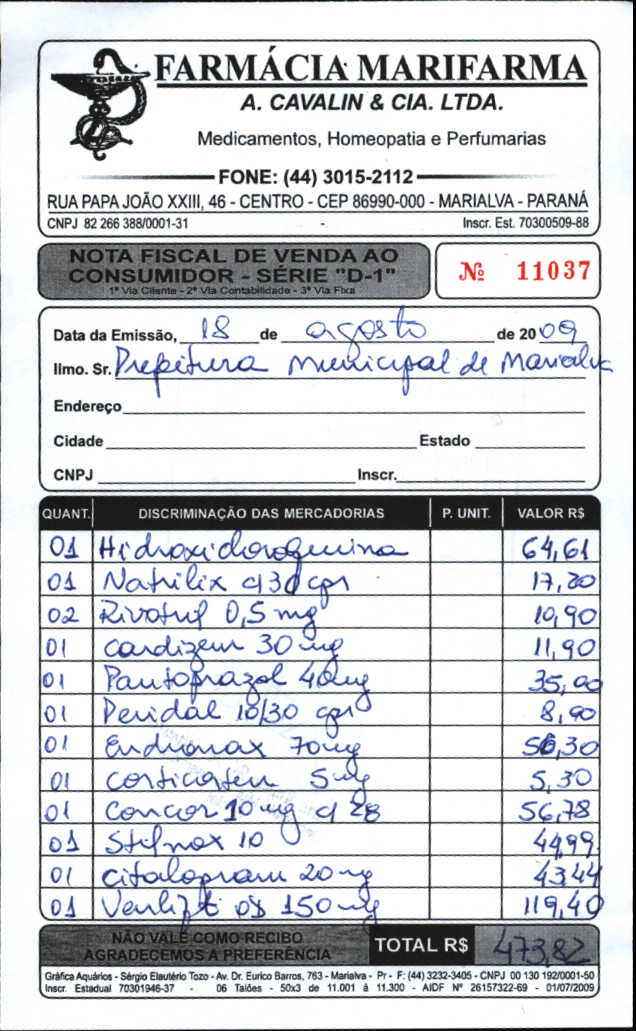 FARMÁCIA MARIFARMA
A. CAVALIN & CIA. LTDA.
Medicamentos, Homeopatia e Perfumarias
FONE: (44) 3015-2112
RUA PAPA JOÃO XXIII, 46 - CENTRO - CEP 86990-000 - MARIALVA - PARANÁ
CNPJ 82 266 388/0001-31 - Inscr. Est. 70300509-88
NOTA FISCAL DE VENDA AO
CONSUMIDOR - SÉRIE "D-1"
1ª Via Cliente - 2ª Via Contabilidade - 3ª Via Fixa
Nº 11037
Data da Emissão, 18 de agosto de 2009
Ilmo. Sr. Prefeitura municipal de Marialva
Endereço
Cidade Estado
CNPJ Inscr.
QUANT. DISCRIMINAÇÃO DAS MERCADORIAS P. UNIT. VALOR R$
01 Hidroxicloroquina 64,61
01 Natrilix c/30 cpr 17,20
02 Rivotril 0,5 mg 10,90
01 Cardizem 30 mg 11,90
01 Pantoprazol 40mg 35,00
01 Peridal 10/30 cpr 8,90
01 Endronax 70mg 56,30
01 Corticorten 5mg 5,30
01 Concor 10 mg c/ 28 56,78
01 Stilnox 10 44,99
01 citalopram 20 mg 43,44
01 Venlift od 150 mg 119,40
NÃO VALE COMO RECIBO
AGRADECEMOS A PREFERÊNCIA
TOTAL R$ 473,82
Gráfica Aquários - Sérgio Elautério Tozo - Av. Dr. Eurico Barros, 763 - Marialva - Pr - F: (44) 3232-3405 - CNPJ 00 130 192/0001-50
Inscr. Estadual 70301946-37 - 06 Talões - 50x3 de 11.001 à 11.300 - AIDF Nº 26157322-69 - 01/07/2009